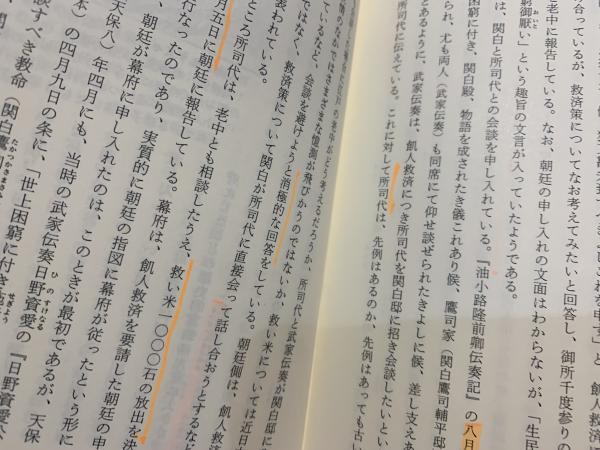 合っているが、救済策についてなお考えてみたいと回答し、御所千度参りの
老中に報告している。なお、朝廷の申し入れの文面はわからないが、「生民
窮御厭い」という趣旨の文言が入っていたようである。
は、関白と所司代との会談を申し入れている。『油小路隆前卿伝奏記』の八月
困窮に付き、関白殿、物語を成されたき儀これあり候、鷹司家（関白鷹司輔平邸
られ、尤も両人（武家伝奏）も同席にて仰せ談ぜられたきよしに候、差し支えあ
とあるように、武家伝奏は、飢人救済につき所司代を関白邸に招き会談したいとい
所司代に伝えている。これに対して所司代は、先例はあるのか、先例はあっても古い
の老中がどう考えるだろうか、所司代と武家伝奏が関白邸に
のなかではさまざまな憶測が飛びかうのではないか、救い米については近日
ているなど、会談を避けようと消極的な回答をしている。朝廷側は、飢人救
ではなく、救済策について関白が所司代に直接会って話し合おうとするなど
表われている。
ところ所司代は、老中とも相談したうえ、救い米一〇〇〇石の放出を決
月五日に朝廷に報告している。幕府は、飢人救済を要請した朝廷の申
行なったのであり、実質的に朝廷の指図に幕府が従ったという形に
朝廷が幕府に申し入れたのは、このときが最初であるが、天保
天保八）年四月にも、当時の武家伝奏日野資愛の『日野資愛公
本）の四月九日の条に、「世上困窮に付き
談すべき救命（関白鷹